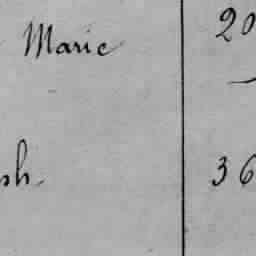 Marie 20
ph. 36